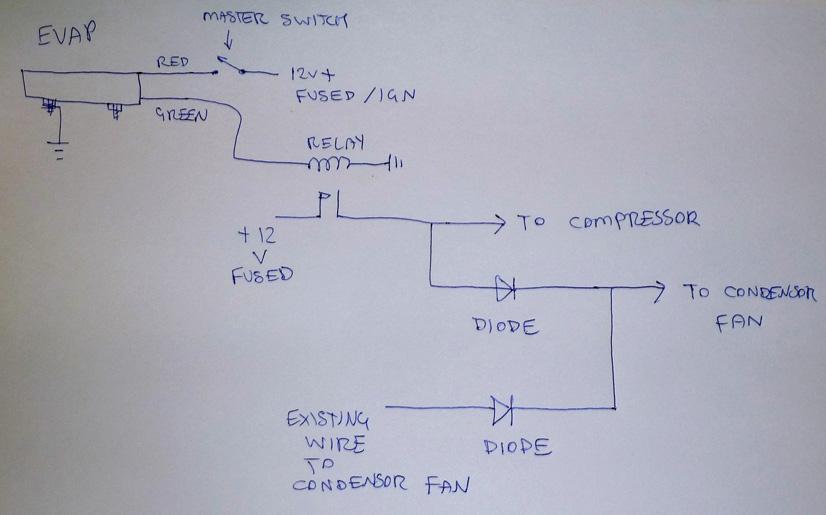 MASTER SWITCH
EVAP
RED
12V+
FUSED / IGN
GREEN
RELAY
+12
V
FUSED
TO COMPRESSOR
TO CONDENSOR
FAN
DIODE
EXISTING
WIRE
TO
CONDENSOR FAN
DIODE